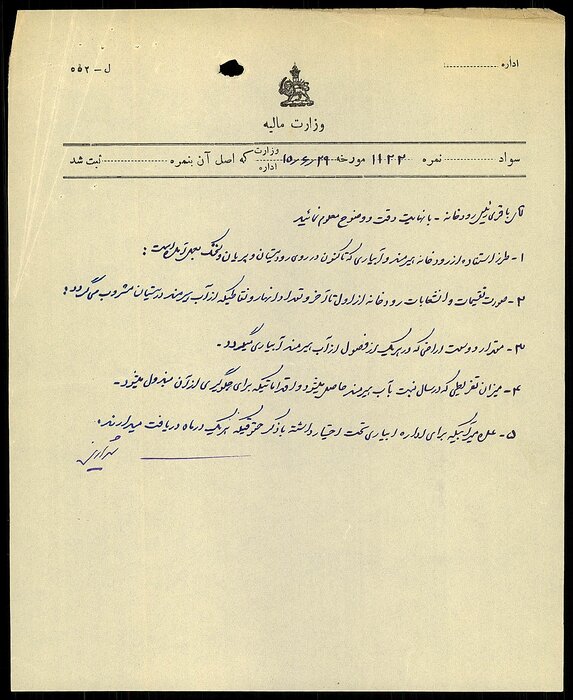 اداره
ل – ۵۵۲
وزارت مالیه
سواد نمره ۱۱۲۲ مورخه ۲۹ر۶ر۱۵ وزارت اداره که اصل آن بنمره ثبت شد
رودخانه - با نهایت دقت و وضوح معلوم نمائید
۱- طرز استفاده از رودخانه هیرمند و آبیاری که تاکنون در روی رود سیستان و پریان و بعمل آمده است:
۲- صورت تقسیمات و انشعابات رودخانه از اول تا آخر و تعداد انهار و نقاطیکه از آب هیرمند در سیستان مشروب میگردد:
۳- مقدار و وسعت اراضی که در هر یک از فصول از آب هیرمند آبیاری میگردد.
۴- میزان تفریطی که در سال نسبت بآب هیرمند حاصل میشود و اقداماتیکه برای جلوگیری از آن مبذول میشود.
۵- عده میرآبهائیکه برای اداره آبیاری تحت اختیار داشته با ذکر حقوقیکه هر یک در ماه دریافت میدارند.